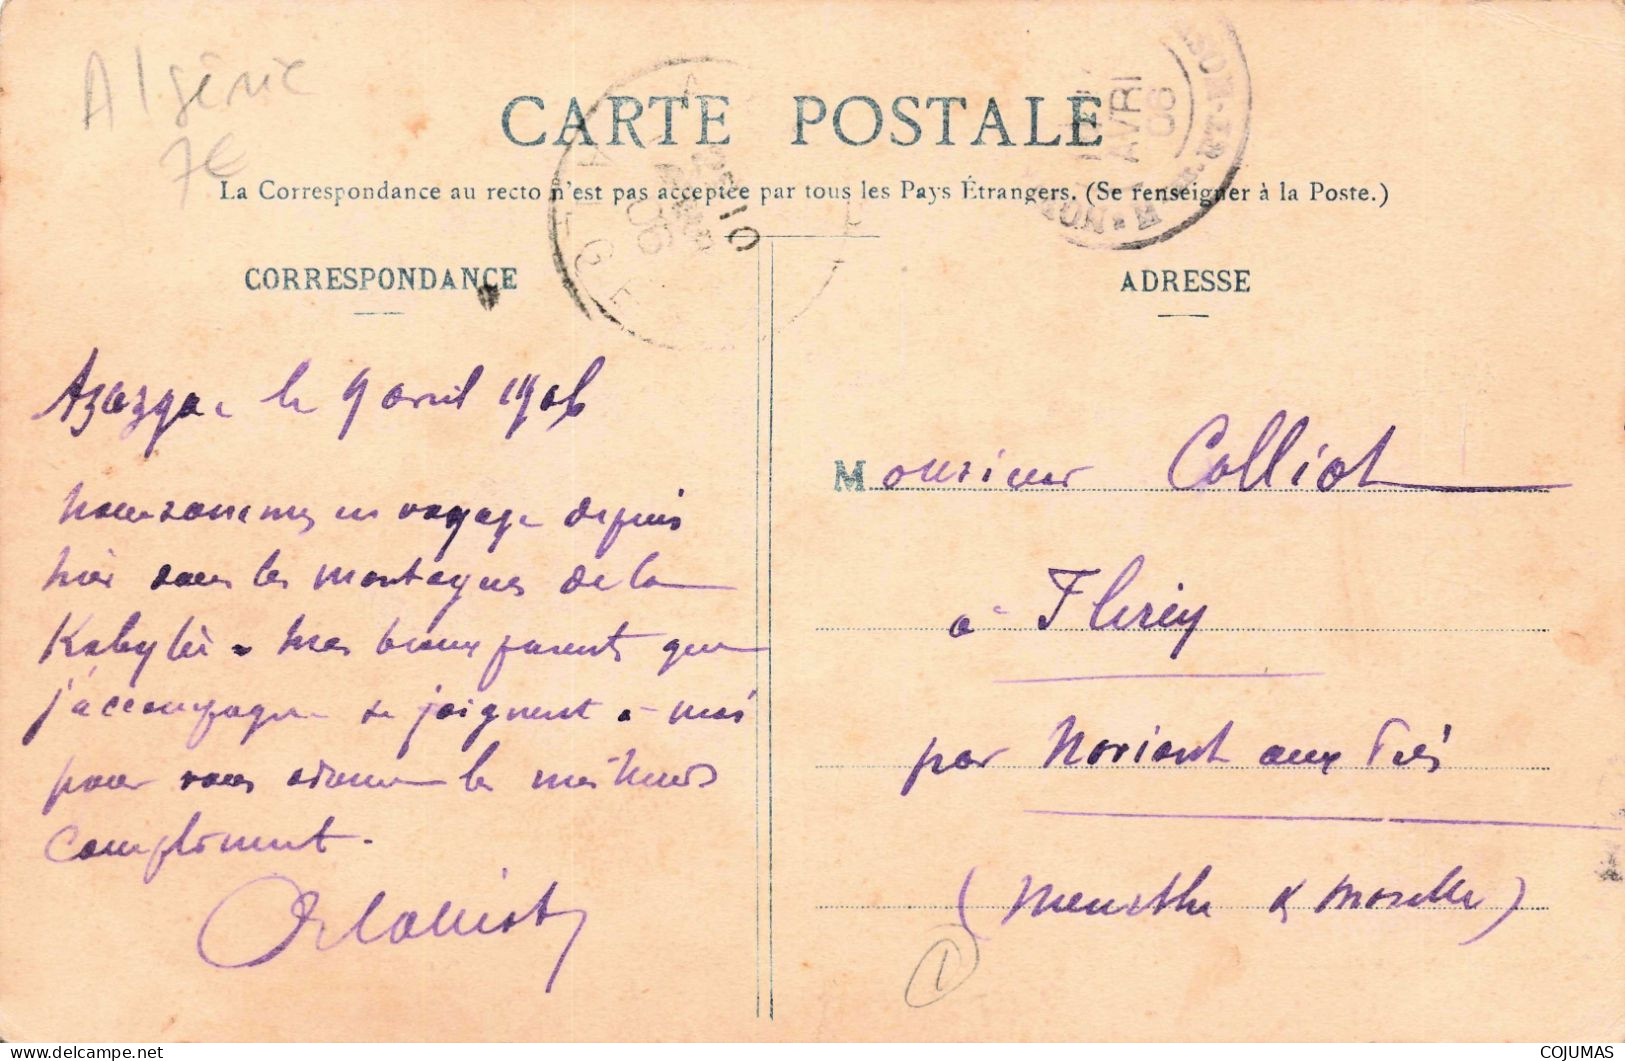 Algérie
7€
CARTE POSTALE
La Correspondance au recto n'est pas acceptée par tous les Pays Étrangers. (Se renseigner à la Poste.)
CORRESPONDANCE
Azazga le 9 avril 1906
Nous sommes en voyage depuis
hier dans les montagnes de la
Kabylie. Mes beaux parents que
j'accompagne se joignent à moi
pour vous adresser les meilleurs
compliment.
ADRESSE
Monsieur Colliot
à Flirey
par Noviant aux Prés
(Meurthe & Moselle)
1
10
AVRIL
06
ALGER
AVRIL
06
COJUMAS